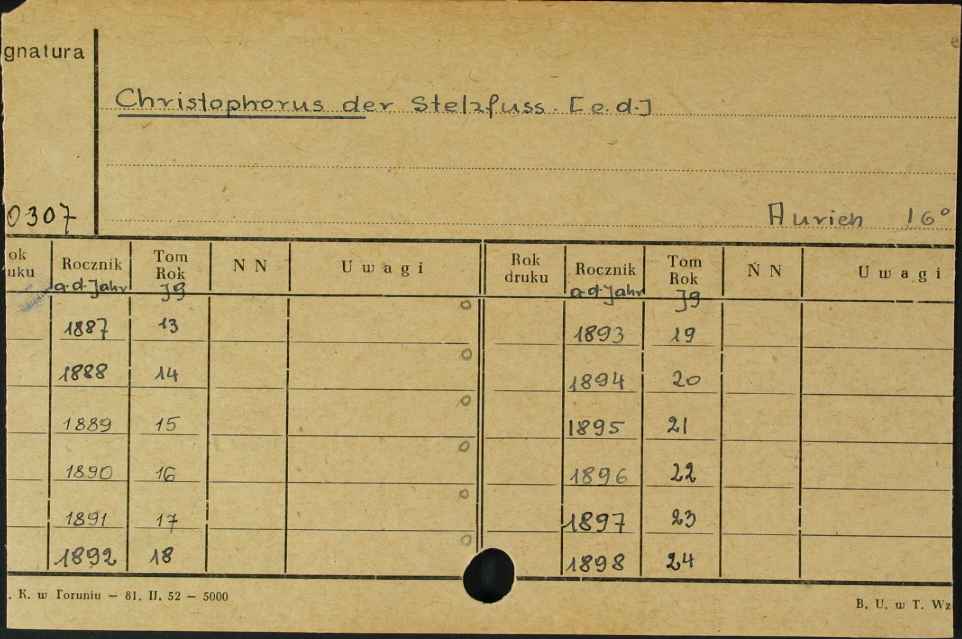 gnatura
Christophorus der Stelzfuss. [e.d.]
0307
Aurich 16°
ok uku Rocznik Tom Rok N N Uwagi Rok druku Rocznik Tom Rok N N Uwagi
a.d.Jahr Jg a.d.Jahr Jg
1887 13 1893 19
1888 14 1894 20
1889 15 1895 21
1890 16 1896 22
1891 17 1897 23
1892 18 1898 24
. K. w Toruniu — 81. II. 52 — 5000
B. U. w T. Wz